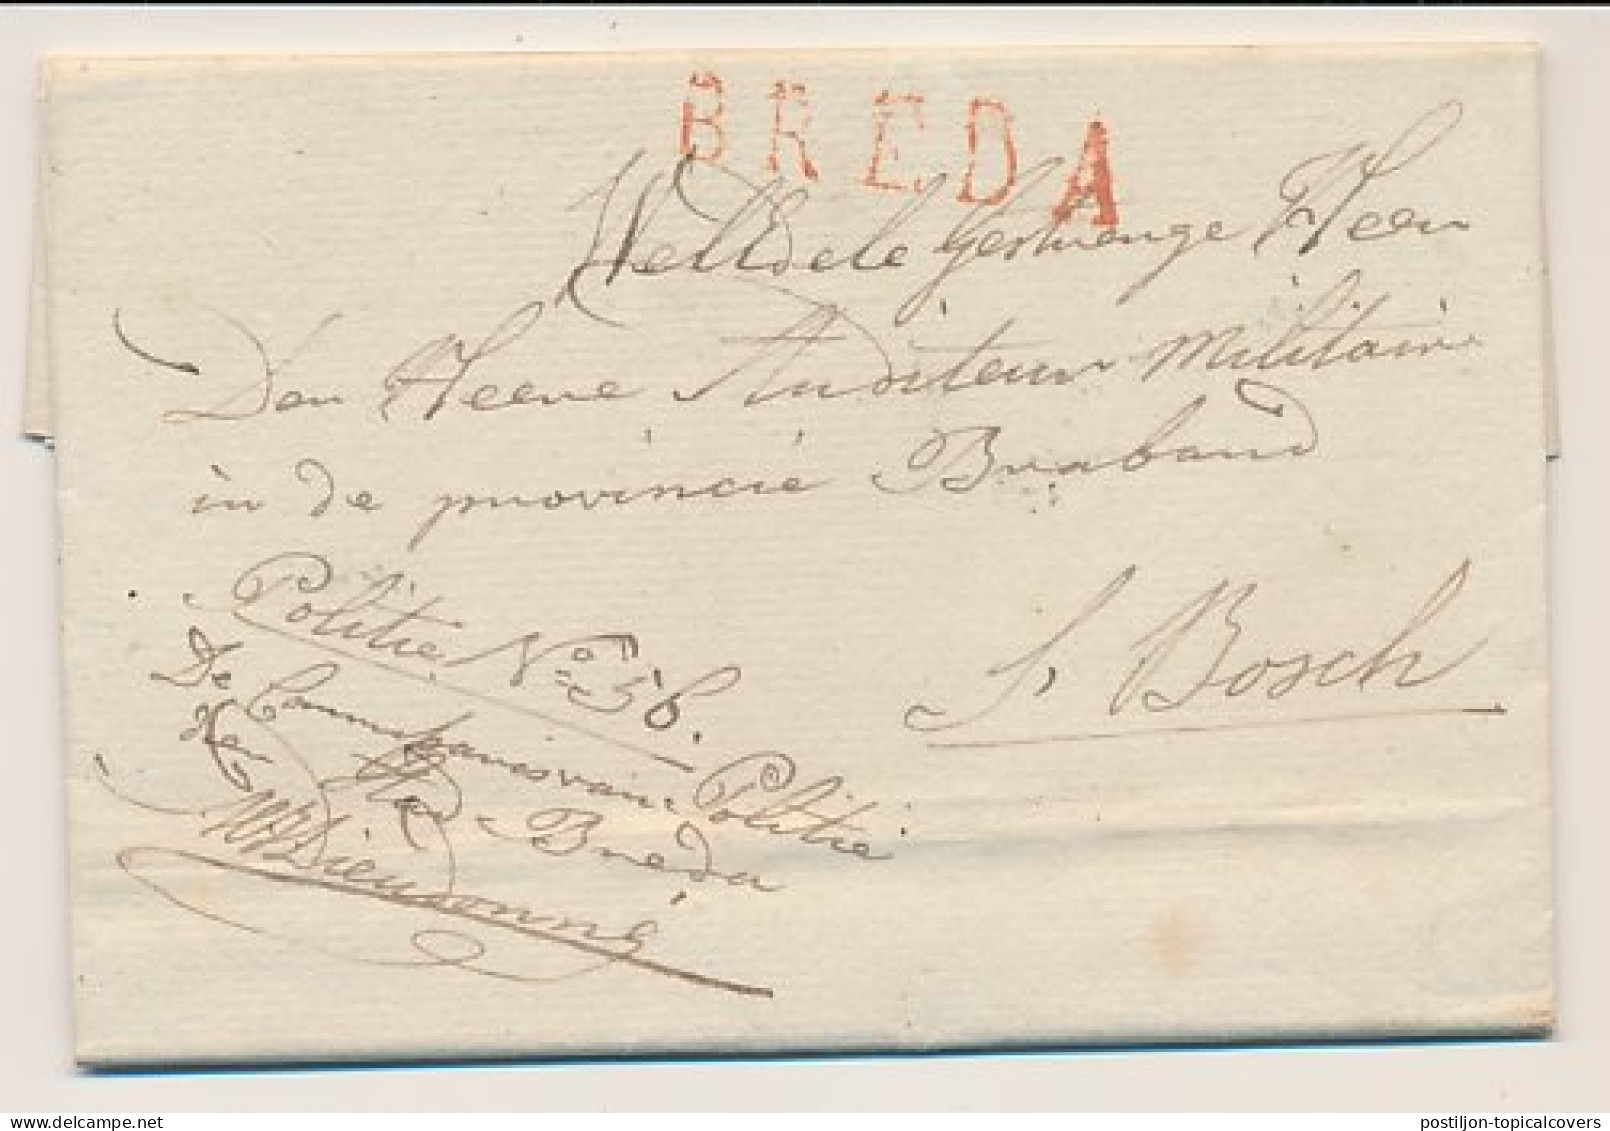 BREDA
WelEdele Gestrenge Heer
Den Heere Auditeur Militair
in de provincie Braband
S. Bosch
Politie No. 56.
De Commissaris van Politie
der Stad Breda
Dieudonné
postiljon-topicalcovers